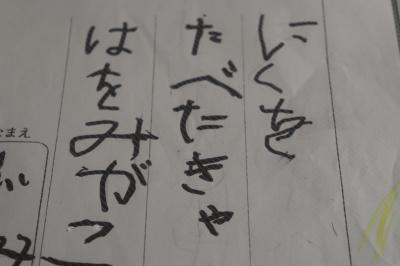 にくを
たべたきゃ
はをみがこ
なまえ